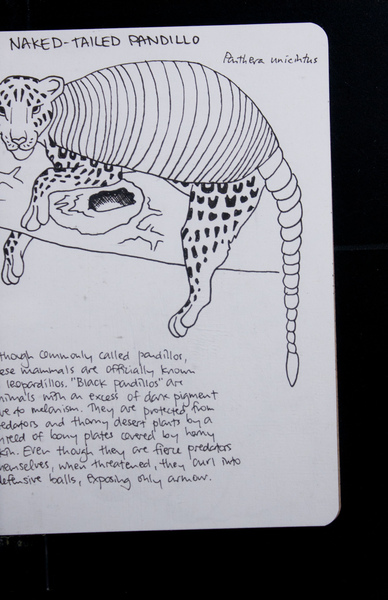 NAKED-TAILED PANDILLO
Panthera unicintus
though commonly called pandillos,
ese mammals are officially known
leopardillos. "Black pandillos" are
nimals with an excess of dark pigment
ue to melanism. They are protected from
redators and thorny desert plants by a
hield of bony plates covered by horny
kin. Even though they are fierce predators
hemselves, when threatened, they curl into
defensive balls, exposing only armour.